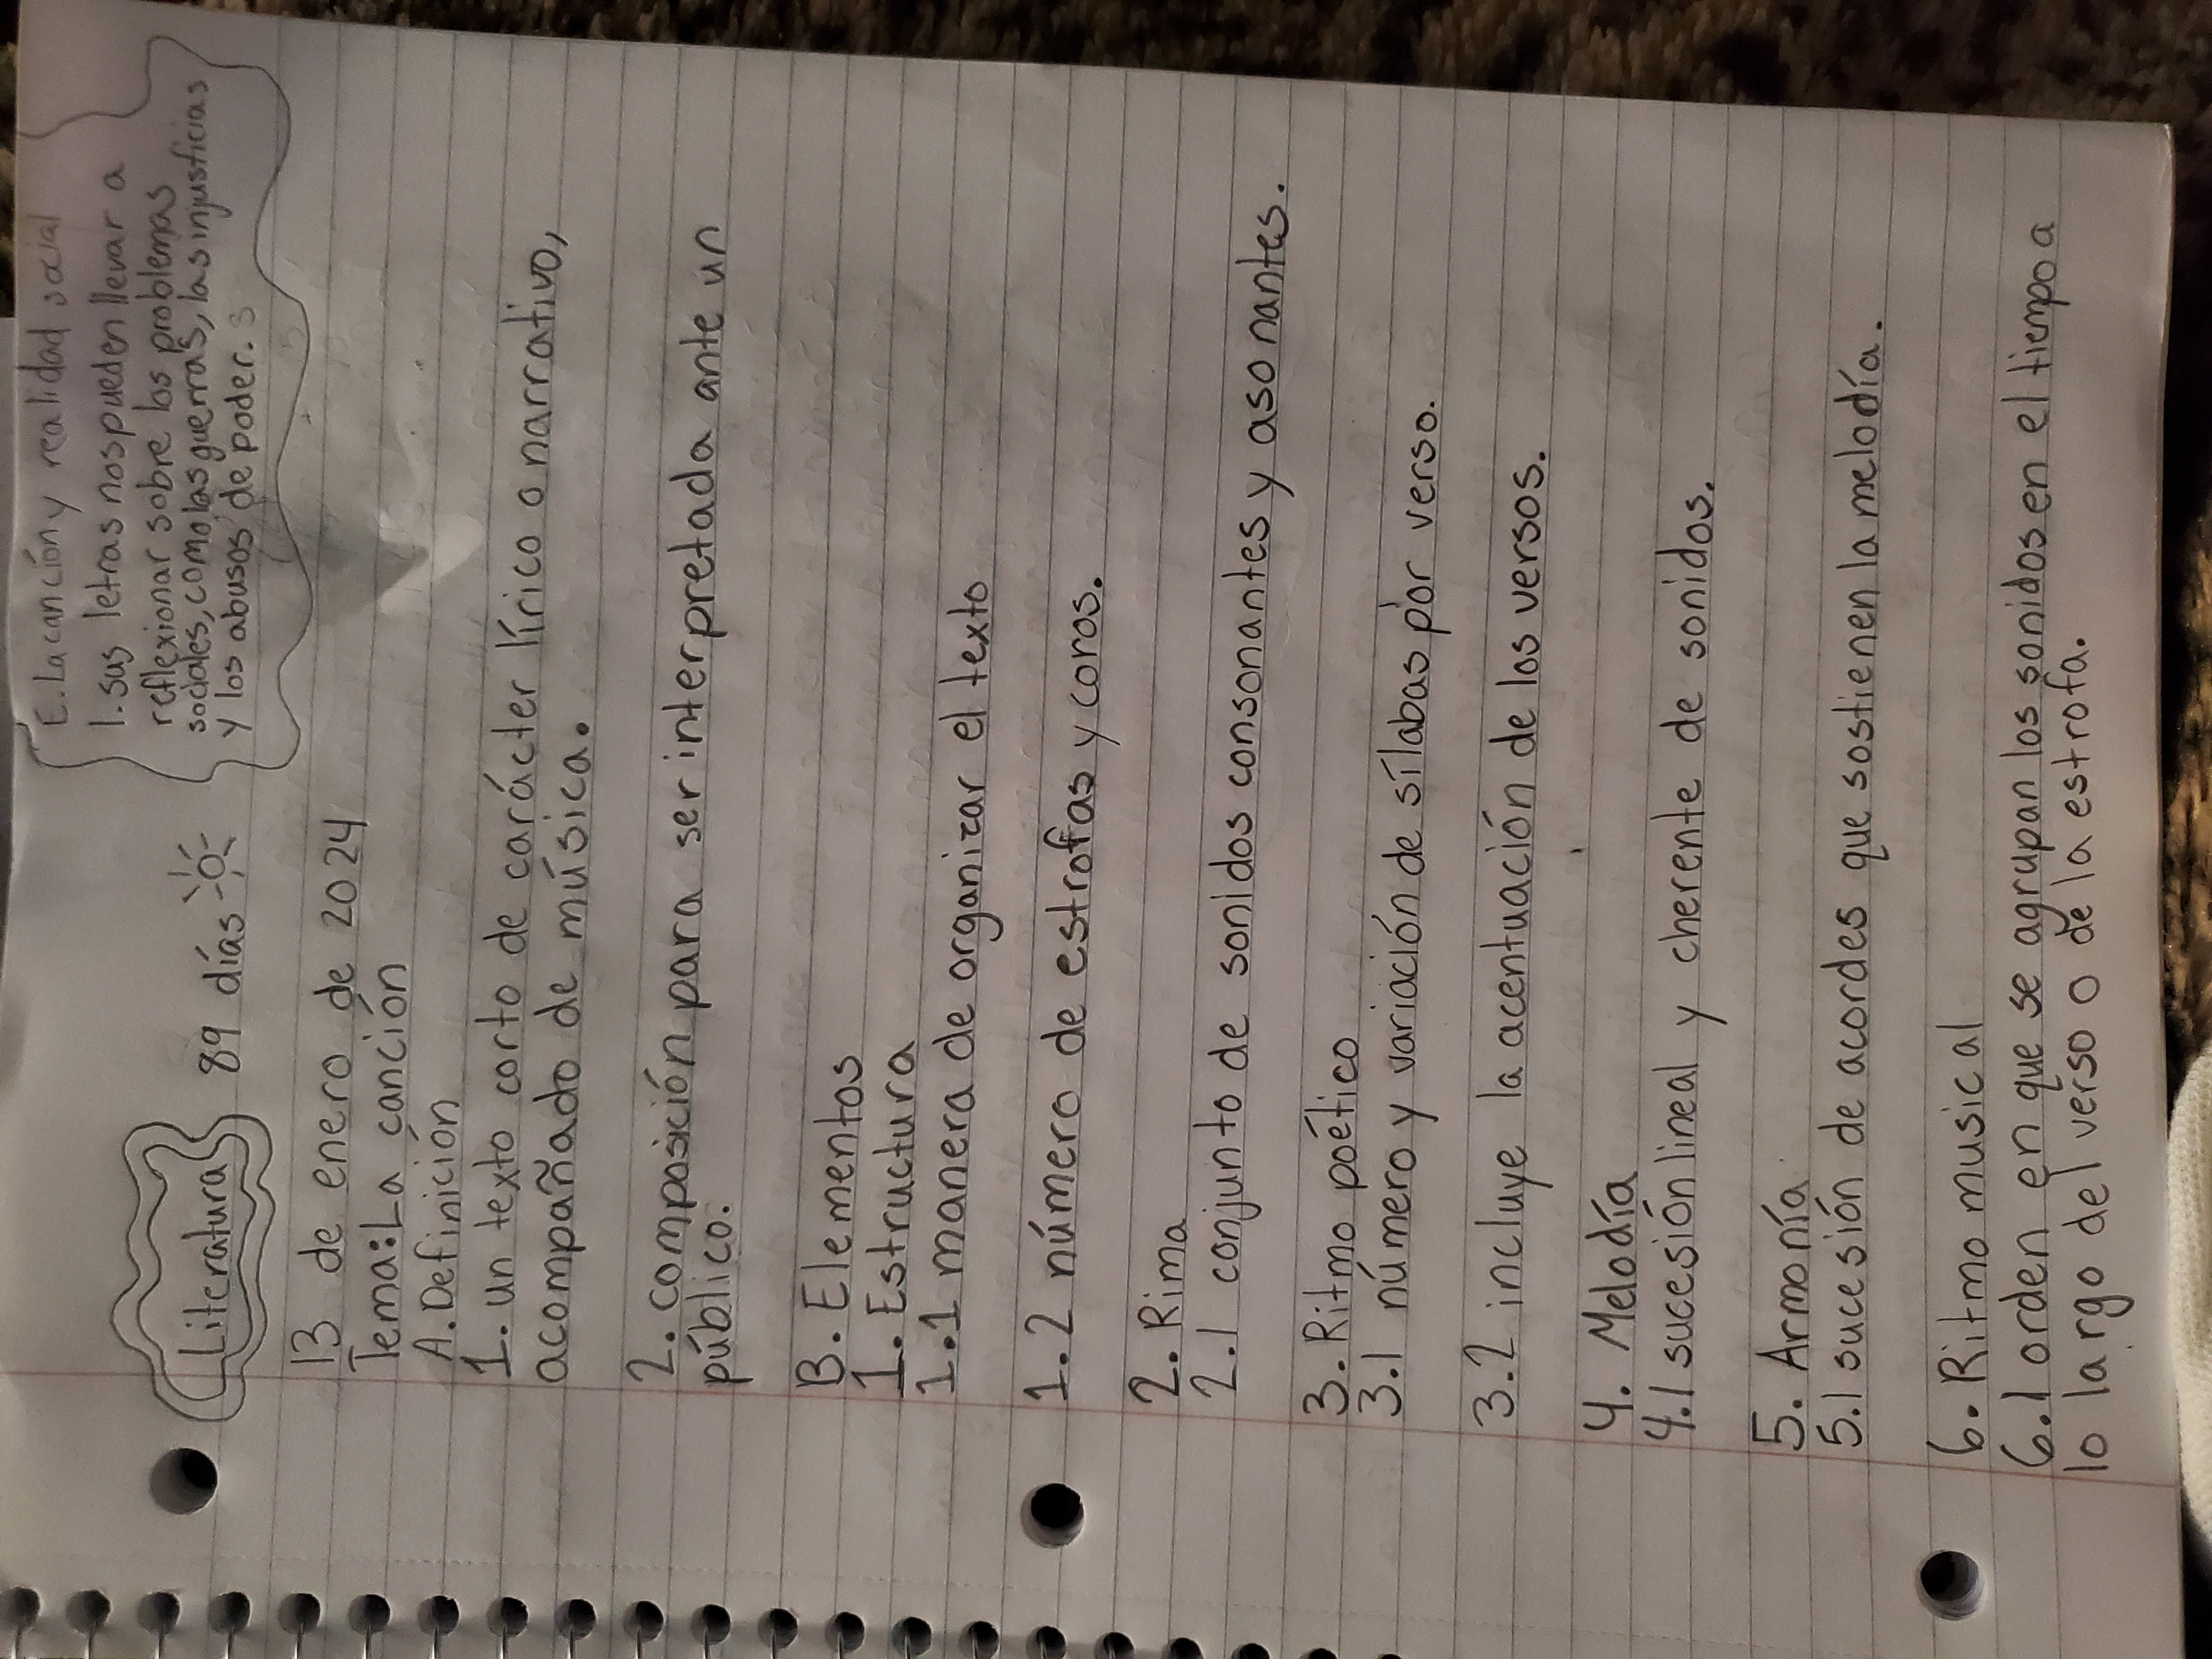 Literatura 89 días
E. La canción y realidad social
1. sus letras nos pueden llevar a
reflexionar sobre los problemas
sociales, como las guerras, las injusticias
y los abusos de poder.
13 de enero de 2024
Tema: La canción
A. Definición
1. un texto corto de carácter lírico o narrativo,
acompañado de música.
2. composición para ser interpretada ante un
público.
B. Elementos
1. Estructura
1.1 manera de organizar el texto
1.2 número de estrofas y coros.
2. Rima
2.1 conjunto de sonidos consonantes y asonantes.
3. Ritmo poético
3.1 número y variación de sílabas por verso.
3.2 incluye la acentuación de los versos.
4. Melodía
4.1 sucesión lineal y cherente de sonidos.
5. Armonía
5.1 sucesión de acordes que sostienen la melodía.
6. Ritmo musical
6.1 orden en que se agrupan los sonidos en el tiempo a
lo largo del verso o de la estrofa.